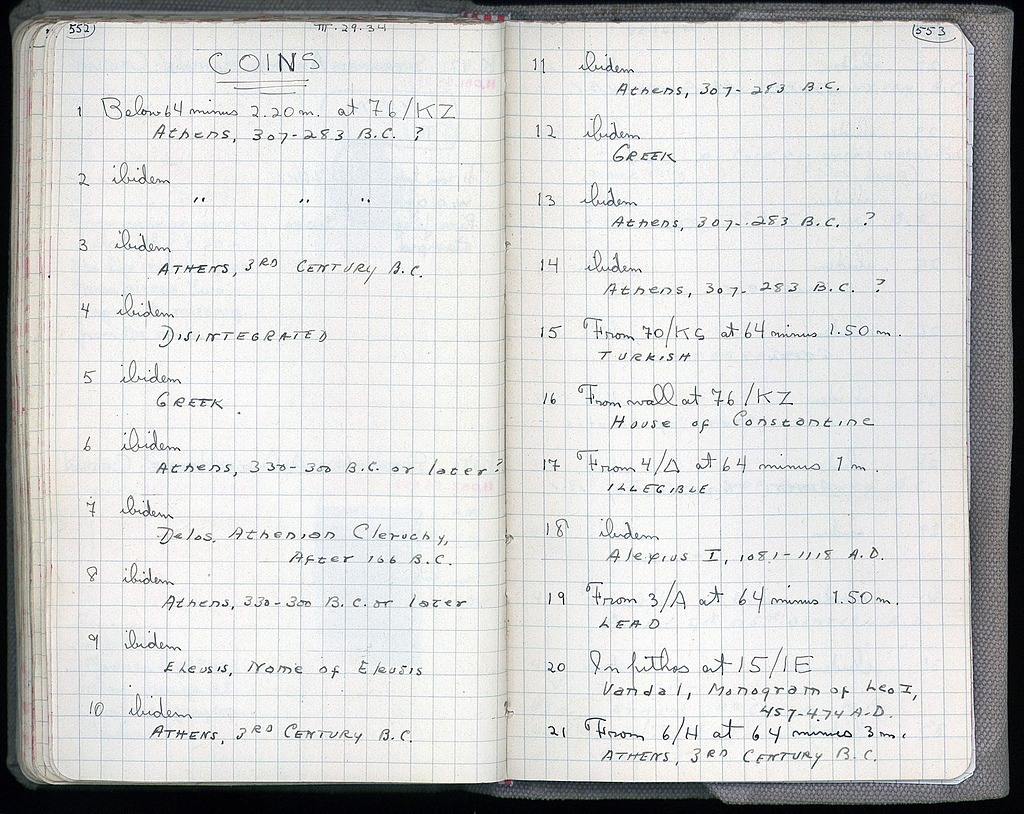 552
III · 29 · 34
COINS
1 Below 64 minus 2.20 m. at 76/KZ
Athens, 307-283 B.C. ?
2 ibidem
" " "
3 ibidem
ATHENS, 3RD CENTURY B.C.
4 ibidem
DISINTEGRATED
5 ibidem
GREEK.
6 ibidem
Athens, 330-300 B.C. or later?
7 ibidem
Delos, Athenian Cleruchy,
After 166 B.C.
8 ibidem
Athens, 330-300 B.C. or later
9 ibidem
Eleusis, Name of Eleusis
10 ibidem
ATHENS, 3RD CENTURY B.C.
553
11 ibidem
Athens, 307-283 B.C.
12 ibidem
GREEK
13 ibidem
Athens, 307-283 B.C. ?
14 ibidem
Athens, 307-283 B.C. ?
15 From 70/KS at 64 minus 1.50 m.
TURKISH
16 From wall at 76/KZ
House of Constantine
17 From 4/Δ at 64 minus 1 m.
ILLEGIBLE
18 ibidem
Alexius I, 1081-1118 A.D.
19 From 3/A at 64 minus 1.50 m.
LEAD
20 In pithos at 15/IE
Vandal, Monogram of Leo I,
457-474 A.D.
21 From 6/H at 64 minus 3 m.
ATHENS, 3RD CENTURY B.C.